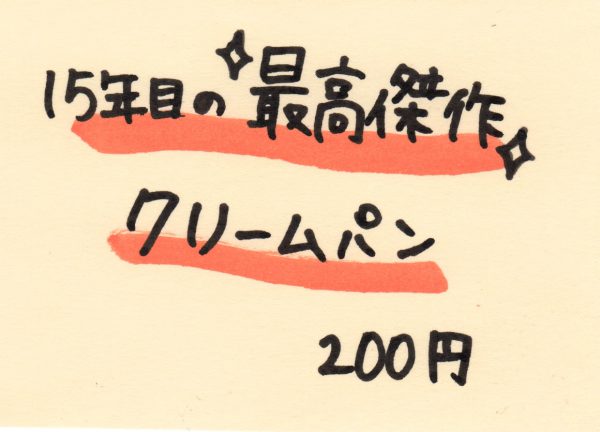 15年目の最高傑作
クリームパン
200円